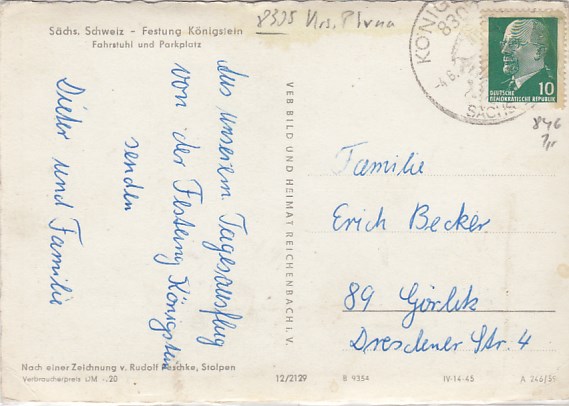 Sächs. Schweiz - Festung Königstein
Fahrstuhl und Parkplatz
8305 Krs. Pirna
Aus unserem Tagesausflug
von der Festung Königstein
senden
Dieter und Familie
VEB BILD UND HEIMAT REICHENBACH i. V.
KÖNIG
830
SÄCHS
10
DEUTSCHE
DEMOKRATISCHE REPUBLIK
846
Familie
Erich Becker
89 Görlitz
Dresdener Str. 4
Nach einer Zeichnung v. Rudolf Peschke, Stolpen
Verbraucherpreis DM -.20
12/2129
B 9354
IV-14-45
A 246/59